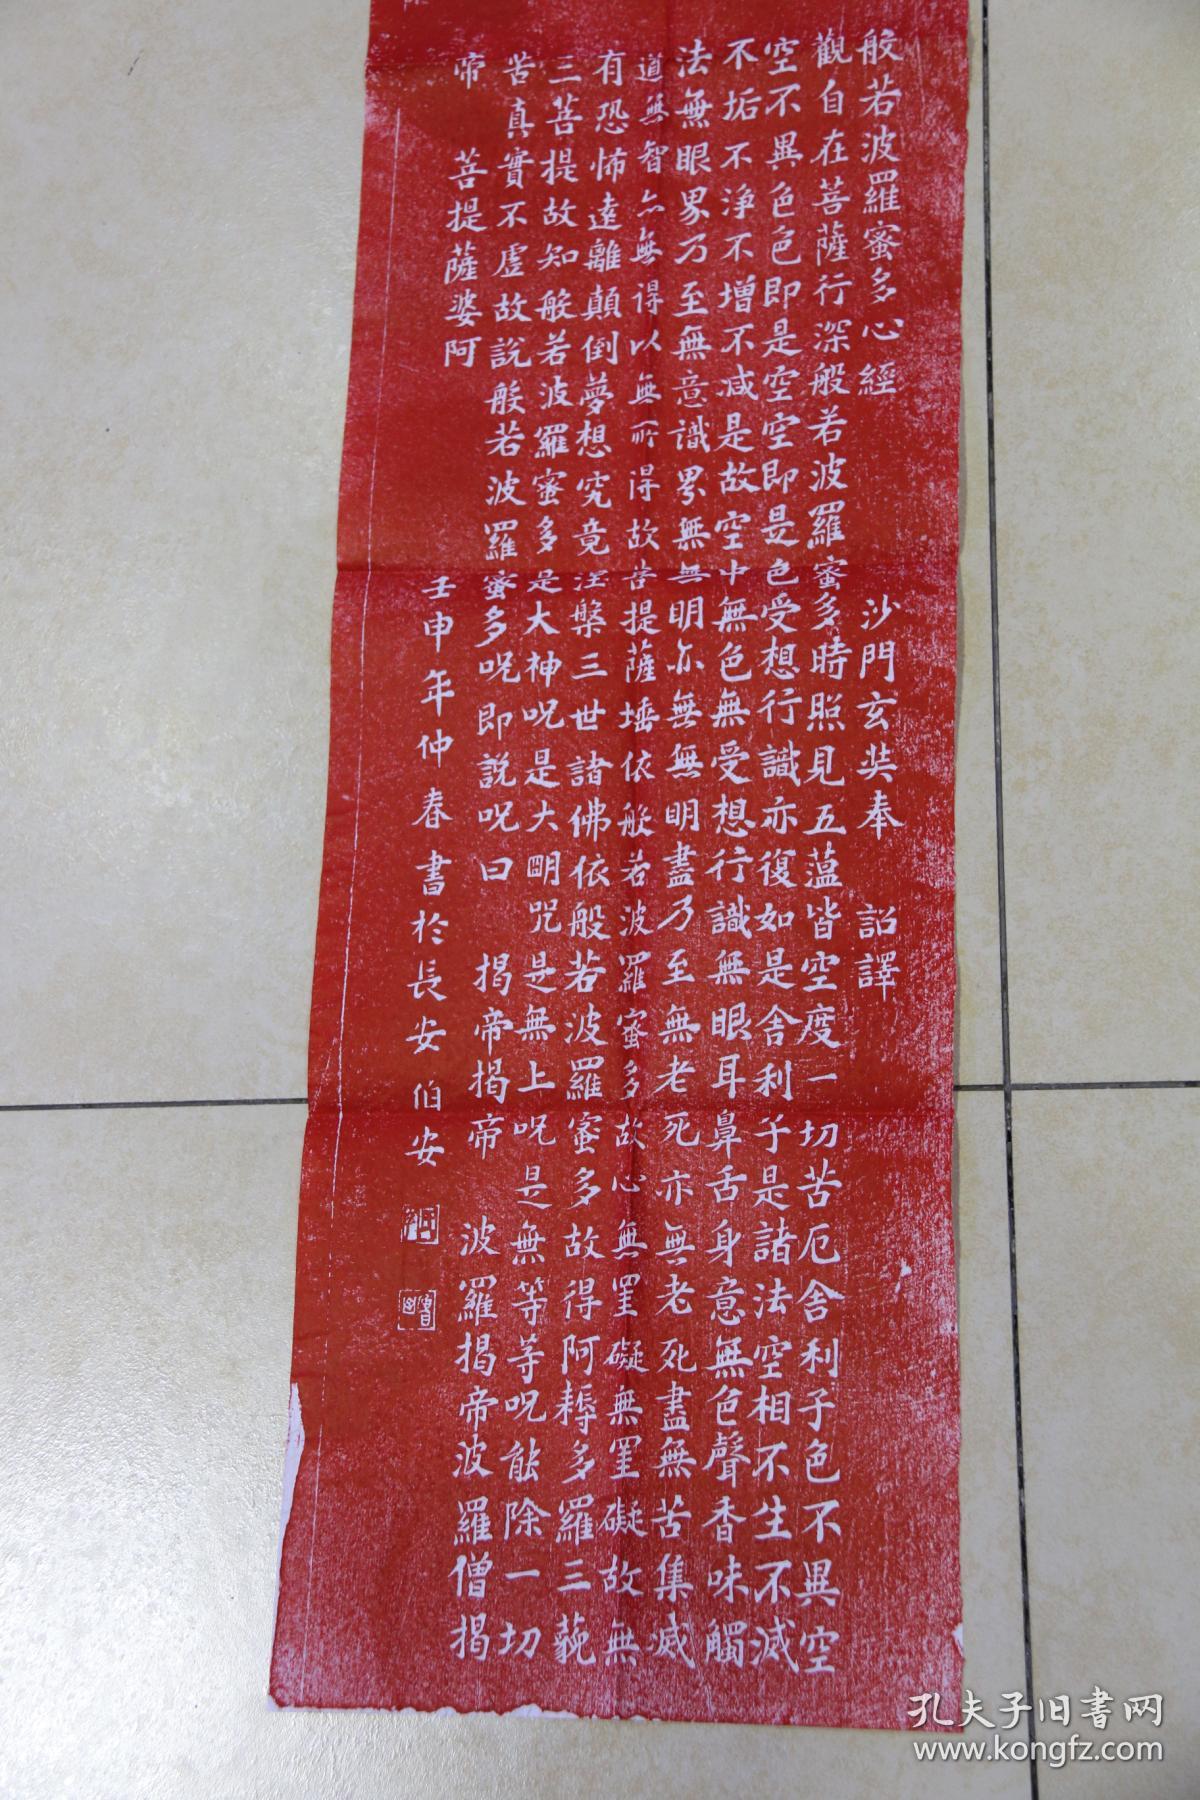 般若波羅蜜多心經 沙門玄奘奉 詔譯
觀自在菩薩行深般若波羅蜜多時照見五蕰皆空度一切苦厄舍利子色不異空
空不異色色即是空空即是色受想行識亦復如是舍利子是諸法空相不生不滅
不垢不淨不增不减是故空中無色無受想行識無眼耳鼻舌身意無色聲香味觸
法無眼界乃至無意識界無無明亦無無明盡乃至無老死亦無老死盡無苦集滅
道無智亦無得以無所得故菩提薩埵依般若波羅蜜多故心無罣礙無罣礙故無
有恐怖遠離顛倒夢想究竟涅槃三世諸佛依般若波羅蜜多故得阿耨多羅三藐
三菩提故知般若波羅蜜多是大神呪是大明咒是無上呪是無等等呪能除一切
苦真實不虛故說般若波羅蜜多呪即說呪曰 揭帝揭帝 波羅揭帝波羅僧揭
帝 菩提薩婆阿
壬申年仲春書於長安伯安
孔夫子旧書网
www.kongfz.com